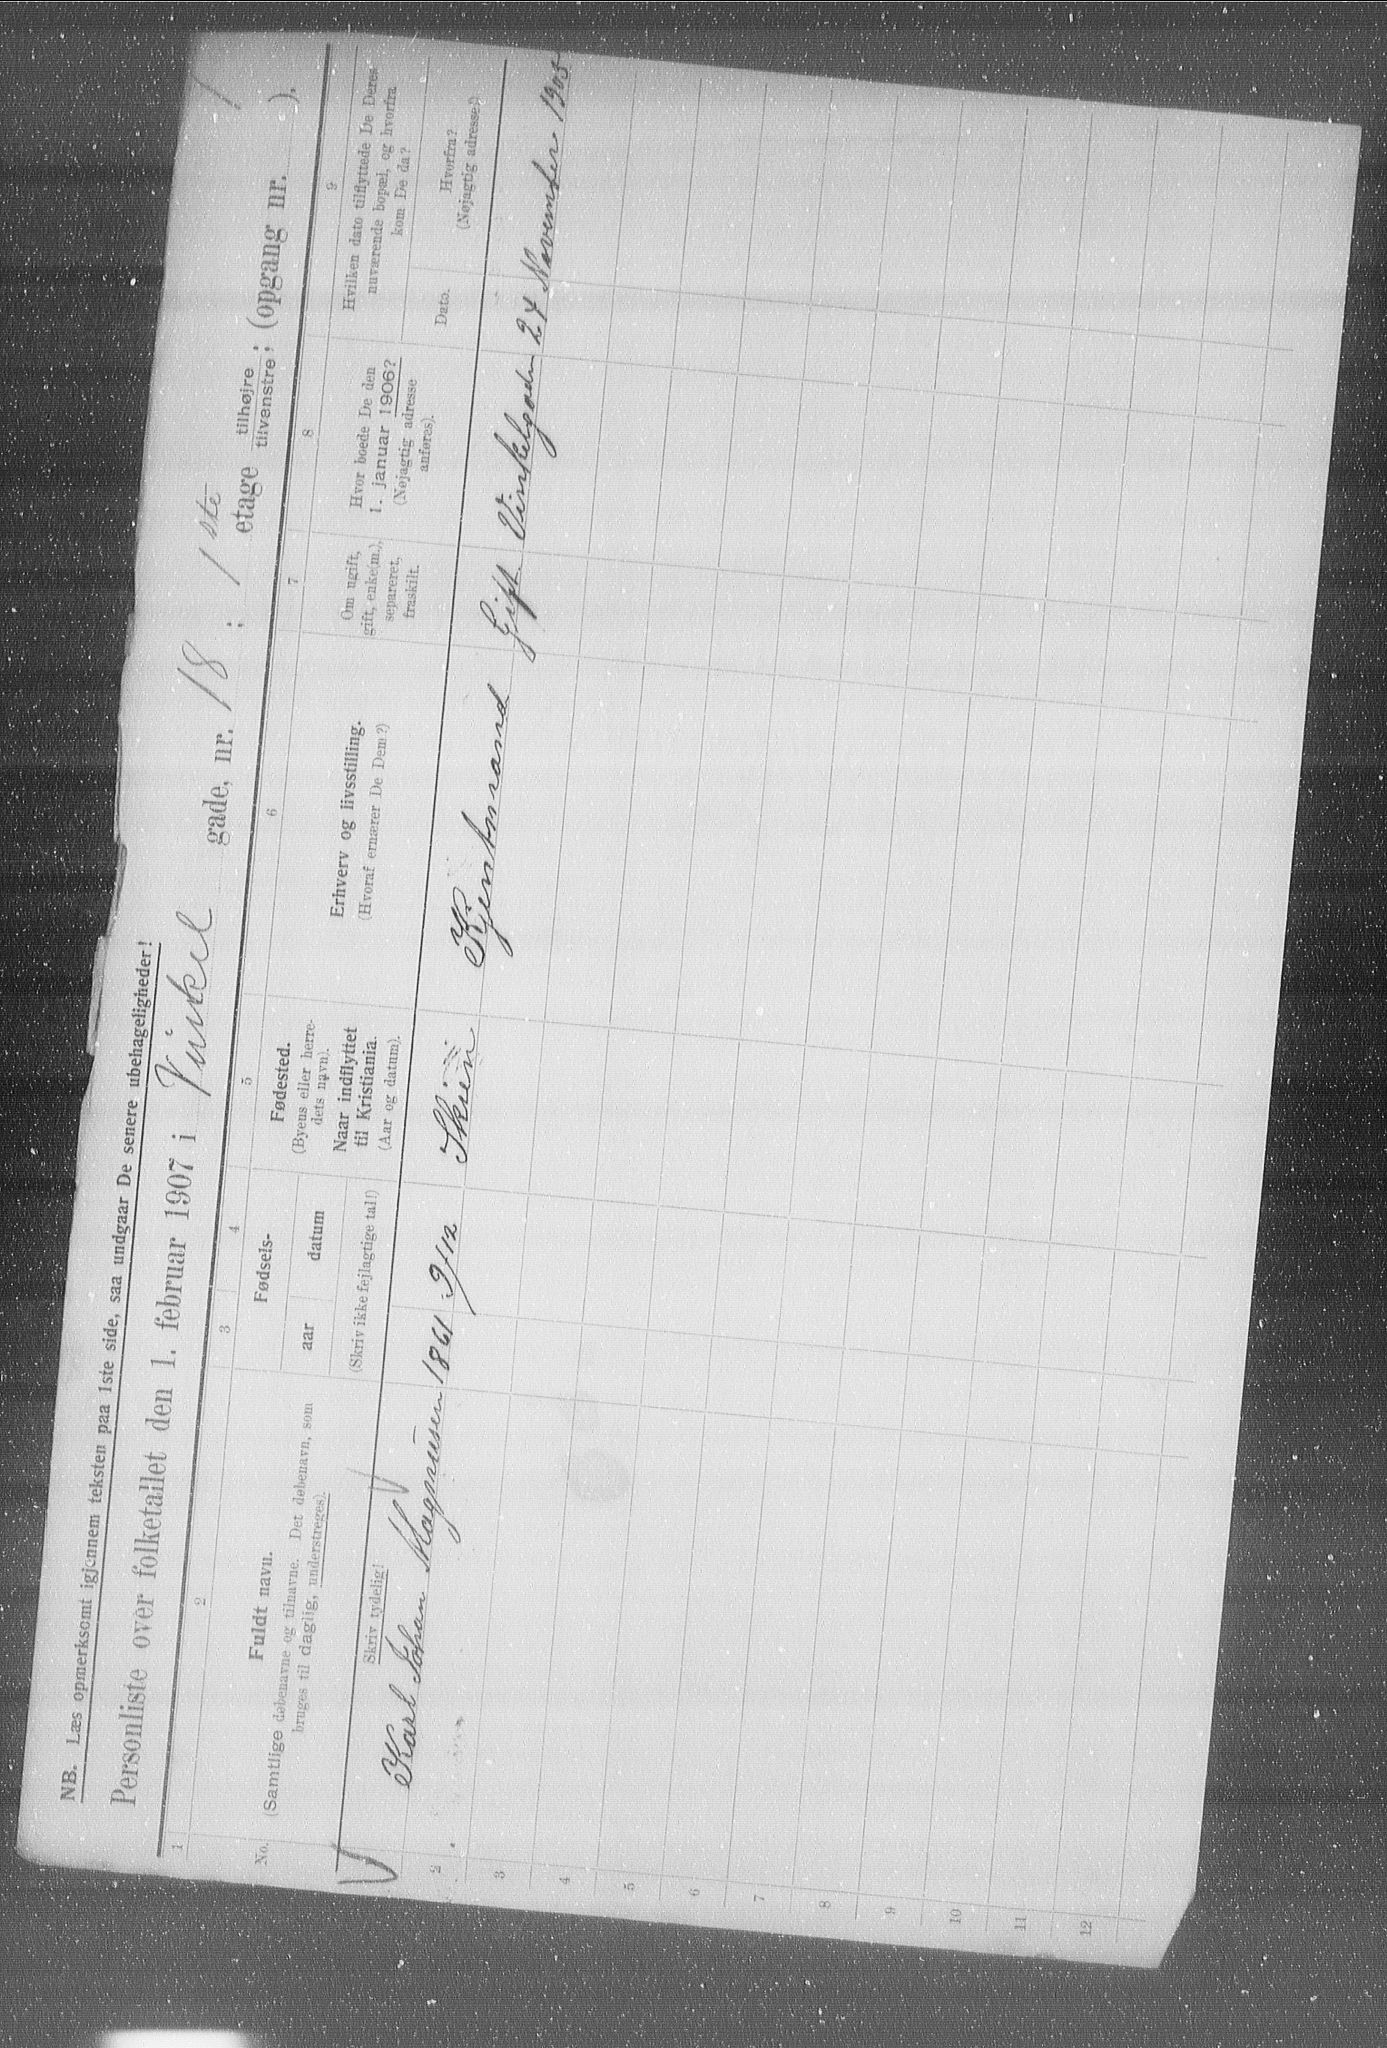 NB. Læs opmerksomt igjennem teksten paa 1ste side, saa undgaar De senere ubehageligheder!
Personliste over folketallet den 1. februar 1907 i Vinkel gade, nr. 18 ; 1ste etage tilhøjre ; (opgang nr. ).
tilvenstre ;
1 2 3 4 5 6 7 8 9
No.
Fuldt navn.
(Samtlige døbenavne og tilnavne. Det døbenavn, som
bruges til daglig, understreges).
Skriv tydelig!
Fødsels-
aar datum
(Skriv ikke fejlagtige tal!)
Fødested.
(Byens eller herre-
dets navn).
Naar indflyttet
til Kristiania.
(Aar og datum).
Erhverv og livsstilling.
(Hvoraf ernærer De Dem?)
Om ugift,
gift, enke(m.),
separeret,
fraskilt.
Hvor boede De den
1. januar 1906?
(Nøjagtig adresse
anføres).
Hvilken dato tilflyttede De Deres
nuværende bopæl, og hvorfra
kom De da?
Dato.
Hvorfra?
(Nøjagtig adresse!)
Karl Johan Magnusen 1861 9/12 Skien Kjøntmand Gift Vinkelgaden 24 November 1905
2
3
4
5
6
7
8
9
10
11
12